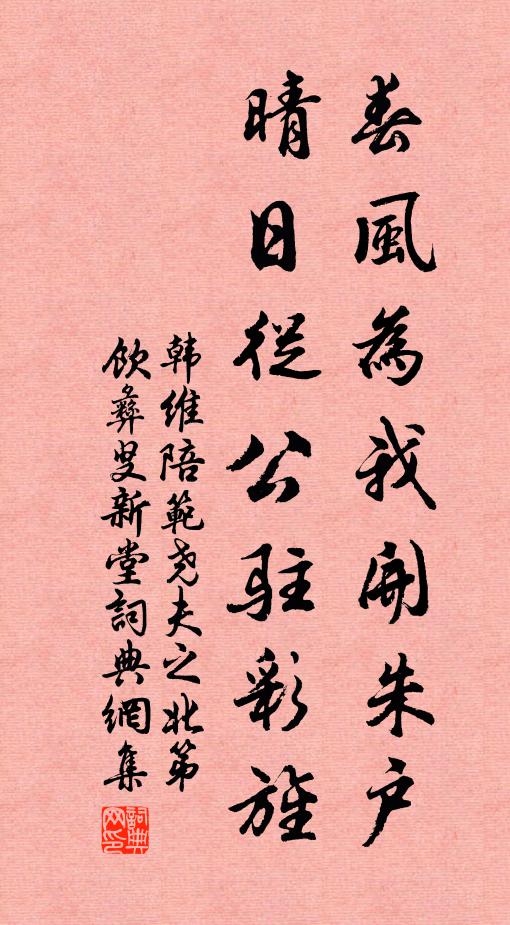 春風為我開朱戶
晴日從公駐彩旌
韩維陪範尧夫之北第
飲彝叟新堂詞典網集
詞典网印